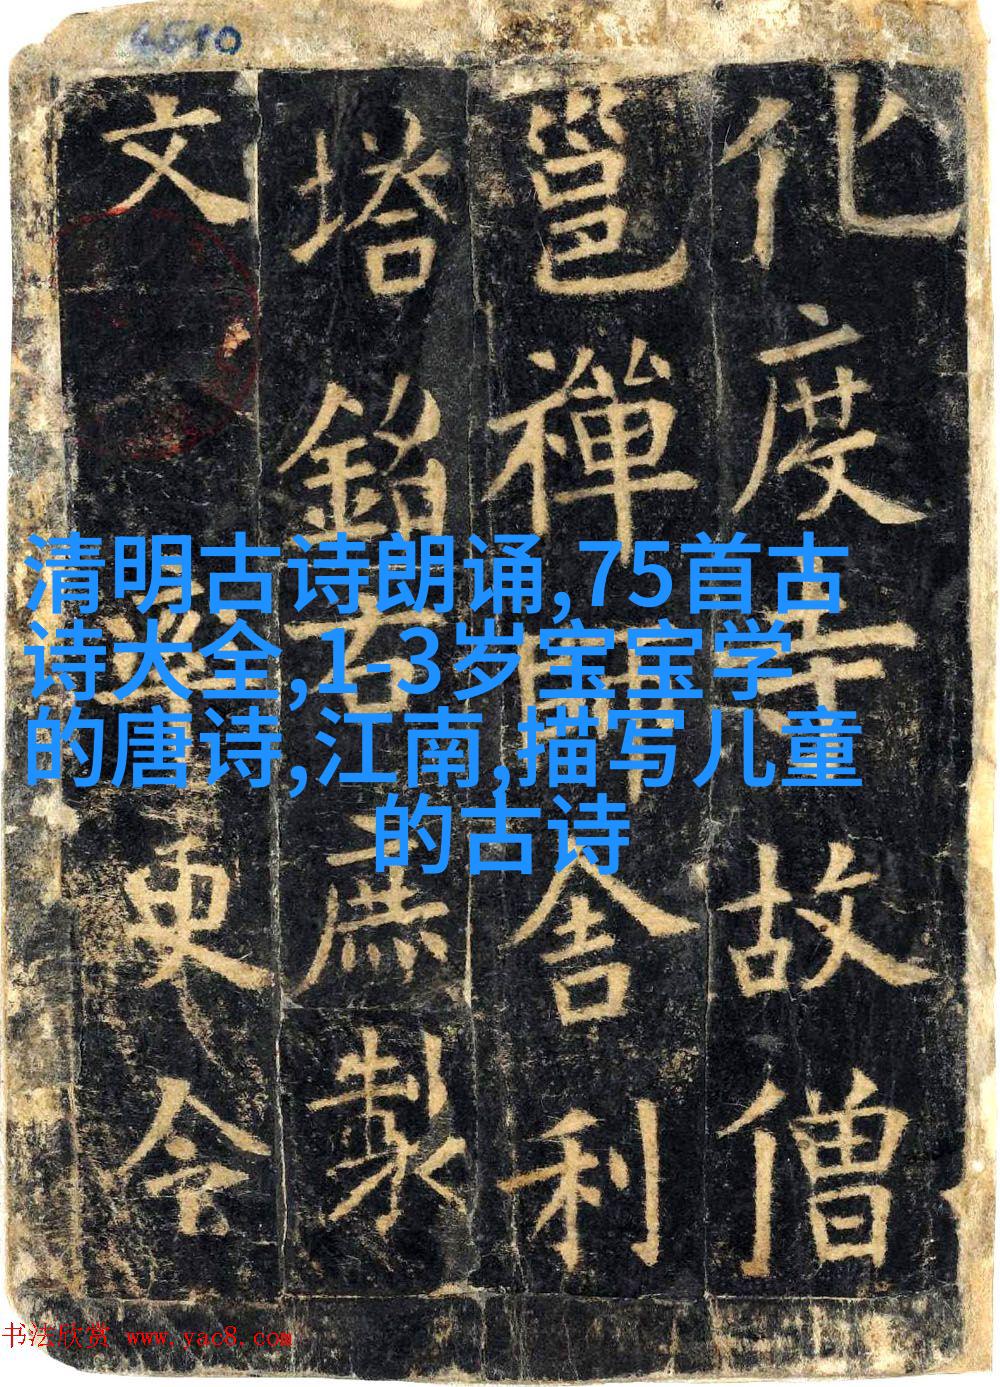 化度寺故僧
邕禪師舍利
塔銘右庶製
文率更令
清明古诗朗诵,75首古
诗大全,1-3岁宝宝学
的唐诗,江南,描写儿童
的古诗
书法欣赏 www.yac8.com